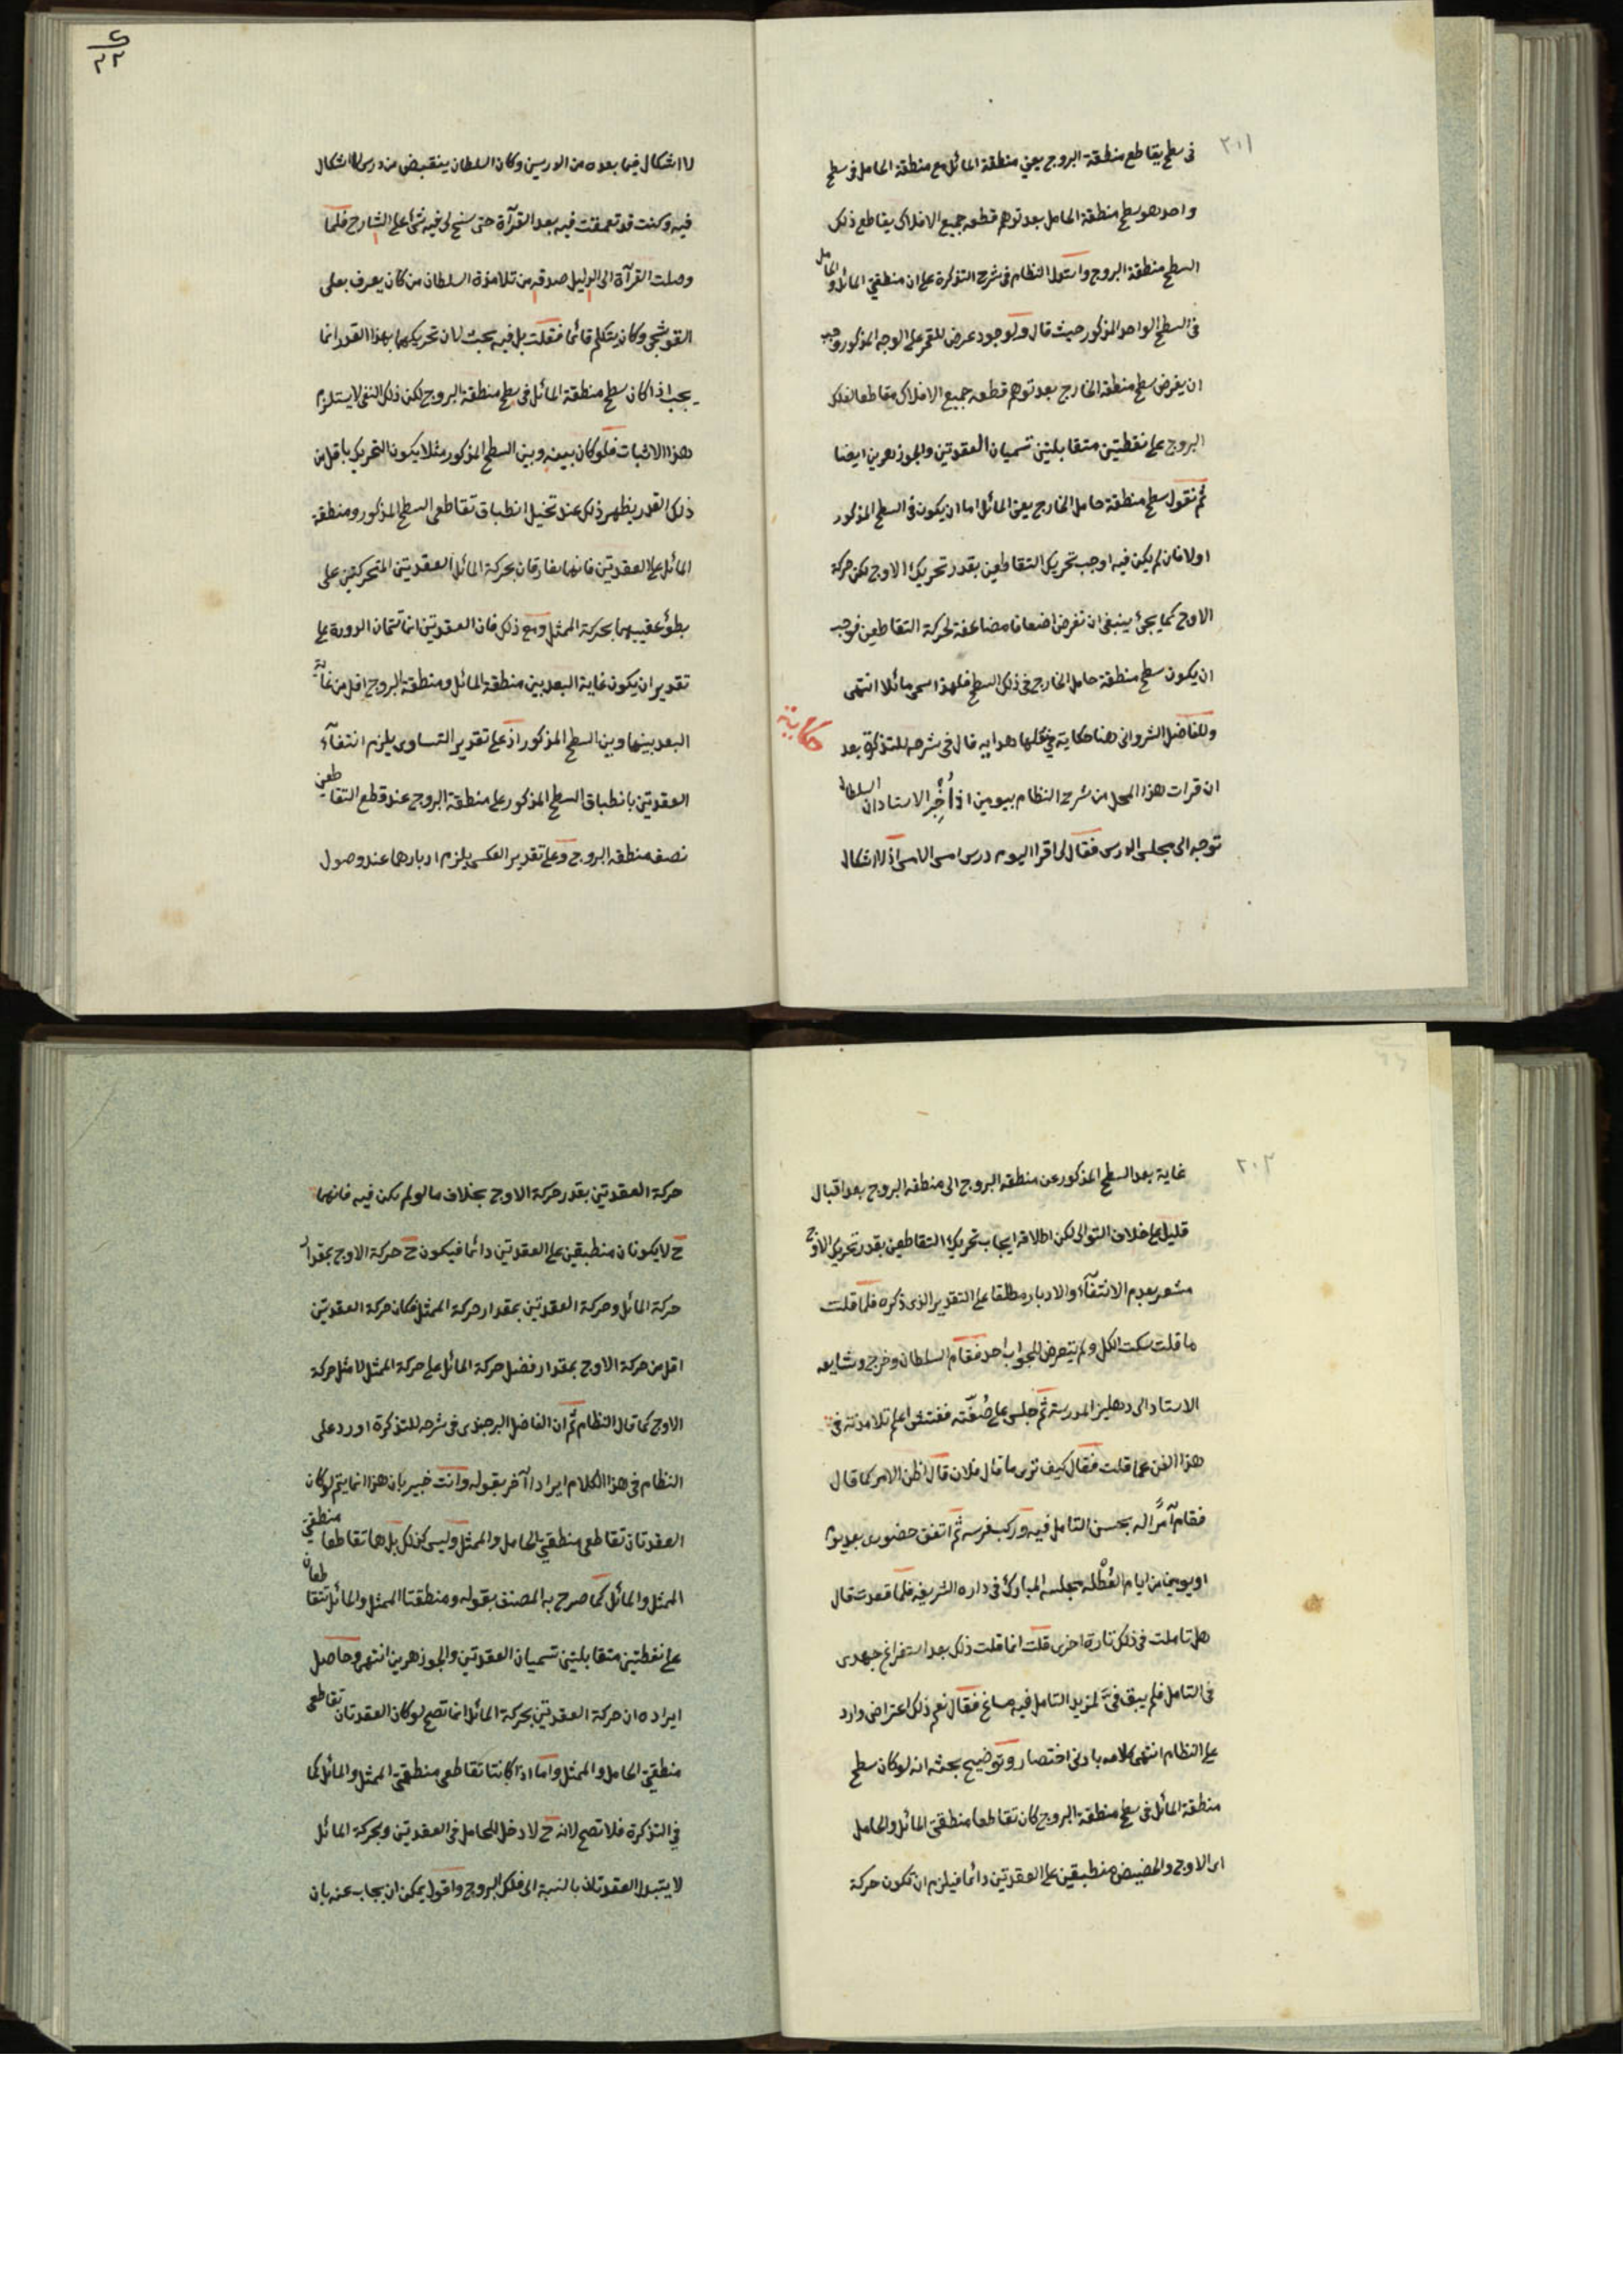 ٢٠١
فى سطح يقاطع منطقة البروج يعني منطقة المائل مع منطقة الحامل فى سطح
واحد هو سطح منطقة الحامل بعد توهم قطعه جميع الافلاك يقاطع ذلك
السطح منطقة البروج واستدل النظام فى شرح التذكرة على ان منطقتى المائل والحامل
فى السطح الواحد المذكور حيث قال ولوجود عرض للقمر على الوجه المذكور وجب
ان يفرض سطح منطقة الخارج بعد توهم قطعه جميع الافلاك مقاطعا لفلك
البروج على نقطتين متقابلتين تسميان العقدتين والجوزهرين ايضا
ثم نقول سطح منطقة حامل الخارج يعنى المائل اما ان يكون فى السطح المذكور
اولا فان لم يكن فيه اوجب تحريك التقاطعين بقدر تحريك الاوج لكن حركة
الاوج كما يجئ ينبغى ان تفرض اضعافا مضاعفة لحركة التقاطعين فوجب
ان يكون سطح منطقة حامل الخارج فى ذلك السطح فلهذا سمى مائلا انتهى
حكاية
وللفاضل الشروانى هنا حكاية فى محلها هداية قال فى شرحه للتذكرة بعد
ان قرات هذا المحل من شرح النظام بيومين اذ أُخْبِرَ الاستاذ ان السلطان
توجه الى مجلس الدرس فقال لى اقرا اليوم درس امس الامس اذ لا اشكال
٢٢
لا اشكال فيما بعده من الدرسين وكان السلطان ينقبض من درس لا اشكال
فيه وكنت قد تعمقت فيه بعد القرآة حتى سنح لى فيه شئ على الشارح فلما
وصلت القرآة الى الدليل صدقه من تلامذة السلطان من كان يعرف بعلى
القوشجى وكان يتكلم قائما فقلت بل فيه بحث لان تحريكهما بهذا القدر انما
يجب اذا كان سطح منطقة المائل فى سطح منطقة البروج لكن ذلك النفى لا يستلزم
هذا الاثبات فلو كان بينه وبين السطح المذكور مثلا يكون التحريك باقل من
ذلك القدر يظهر ذلك عند تخيل انطباق تقاطعى السطح المذكور ومنطقة
المائل على العقدتين فانهما يفارقان بحركة المائل العقدتين المتحركتين على
بطؤ عقيبهما بحركة الممثل ومع ذلك فان العقدتين انما تتمان الدورة على
تقدير ان يكون غاية البعد بين منطقة المائل ومنطقة البروج اقل من غاية
البعد بينها وبين السطح المذكور اذ على تقدير التساوى يلزم انتفآء
العقدتين بانطباق السطح المذكور على منطقة البروج عند قطع التقاطعين
نصف منطقة البروج وعلى تقدير العكس يلزم ادبارهما عند وصول
٢٠٢
غاية بعد السطح المذكور عن منطقة البروج الى منطقة البروج بعد اقبال
قليل على خلاف التوالى لكن اطلاقه ايجاب تحريك التقاطعين بقدر تحريك الاوج
مشعر بعدم الانتفآء والادبار مطلقا على التقدير الذى ذكره فلما قلت
ما قلت سكت الكل ولم يتعرض للجواب احد فقام السلطان وخرج وشايعه
الاستاد الى دهليز المدرسة ثم جلس على صُفّته ففتش اعلم تلامذته فى
هذا الفن عما قلت فقال كيف ترى ما قال فلان قال اظن الامر كما قال
فقام آمرًا له بحسن التامل فيه وركب فرسه ثم اتفق حضورى بعد يوم
او يومين من ايام العُطلة مجلسه المبارك فى داره الشريفه فلما قعدت قال
هل تاملت فى ذلك تارة اخرى قلت انما قلت ذلك بعد استفراغ جهدى
فى التامل فلم يبق فىَّ لمزيد التامل فيه مساغ فقال نعم ذلك اعتراض وارد
على النظام انتهى كلامه بادنى اختصار وتوضيح بحثه انه لو كان سطح
منطقة المائل فى سطح منطقة البروج كان تقاطعا منطقتى المائل والحامل
اى الاوج والحضيض منطبقين على العقدتين دائما فيلزم ان تكون حركة
حركة العقدتين بقدر حركة الاوج بخلاف ما لو لم يكن فيه فانهما
ح لا يكونان منطبقين على العقدتين دائما فيكون ح حركة الاوج بمقدار
حركة المائل وحركة العقدتين بمقدار حركة الممثل فكان حركة العقدتين
اقل من حركة الاوج بمقدار فضل حركة المائل على حركة الممثل لا مثل حركة
الاوج كما قال النظام ثم ان الفاضل البرجندى فى شرحه للتذكرة اورد على
النظام فى هذا الكلام ايرادا آخر بقوله وانت خبير بان هذا انما يتم لو كان
العقدتان تقاطعى منطقتى الحامل والممثل وليس كذلك بل هما تقاطعا منطقتى
الممثل والمائل كما صرح به المصنف بقوله ومنطقتا الممثل والمائل تتقاطعان
على نقطتين متقابلتين تسميان العقدتين والجوزهرين انتهى وحاصل
ايراده ان حركة العقدتين بحركة المائل انما تصح لو كان العقدتان تقاطعى
منطقتى الحامل والممثل واما اذا كانتا تقاطعى منطقتى الممثل والمائل كما
فى التذكرة فلا تصح لانه ح لا دخل للحامل فى العقدتين وبحركة المائل
لا يتبدل العقدتان بالنسبة الى فلك البروج واقول يمكن ان يجاب عنه بان